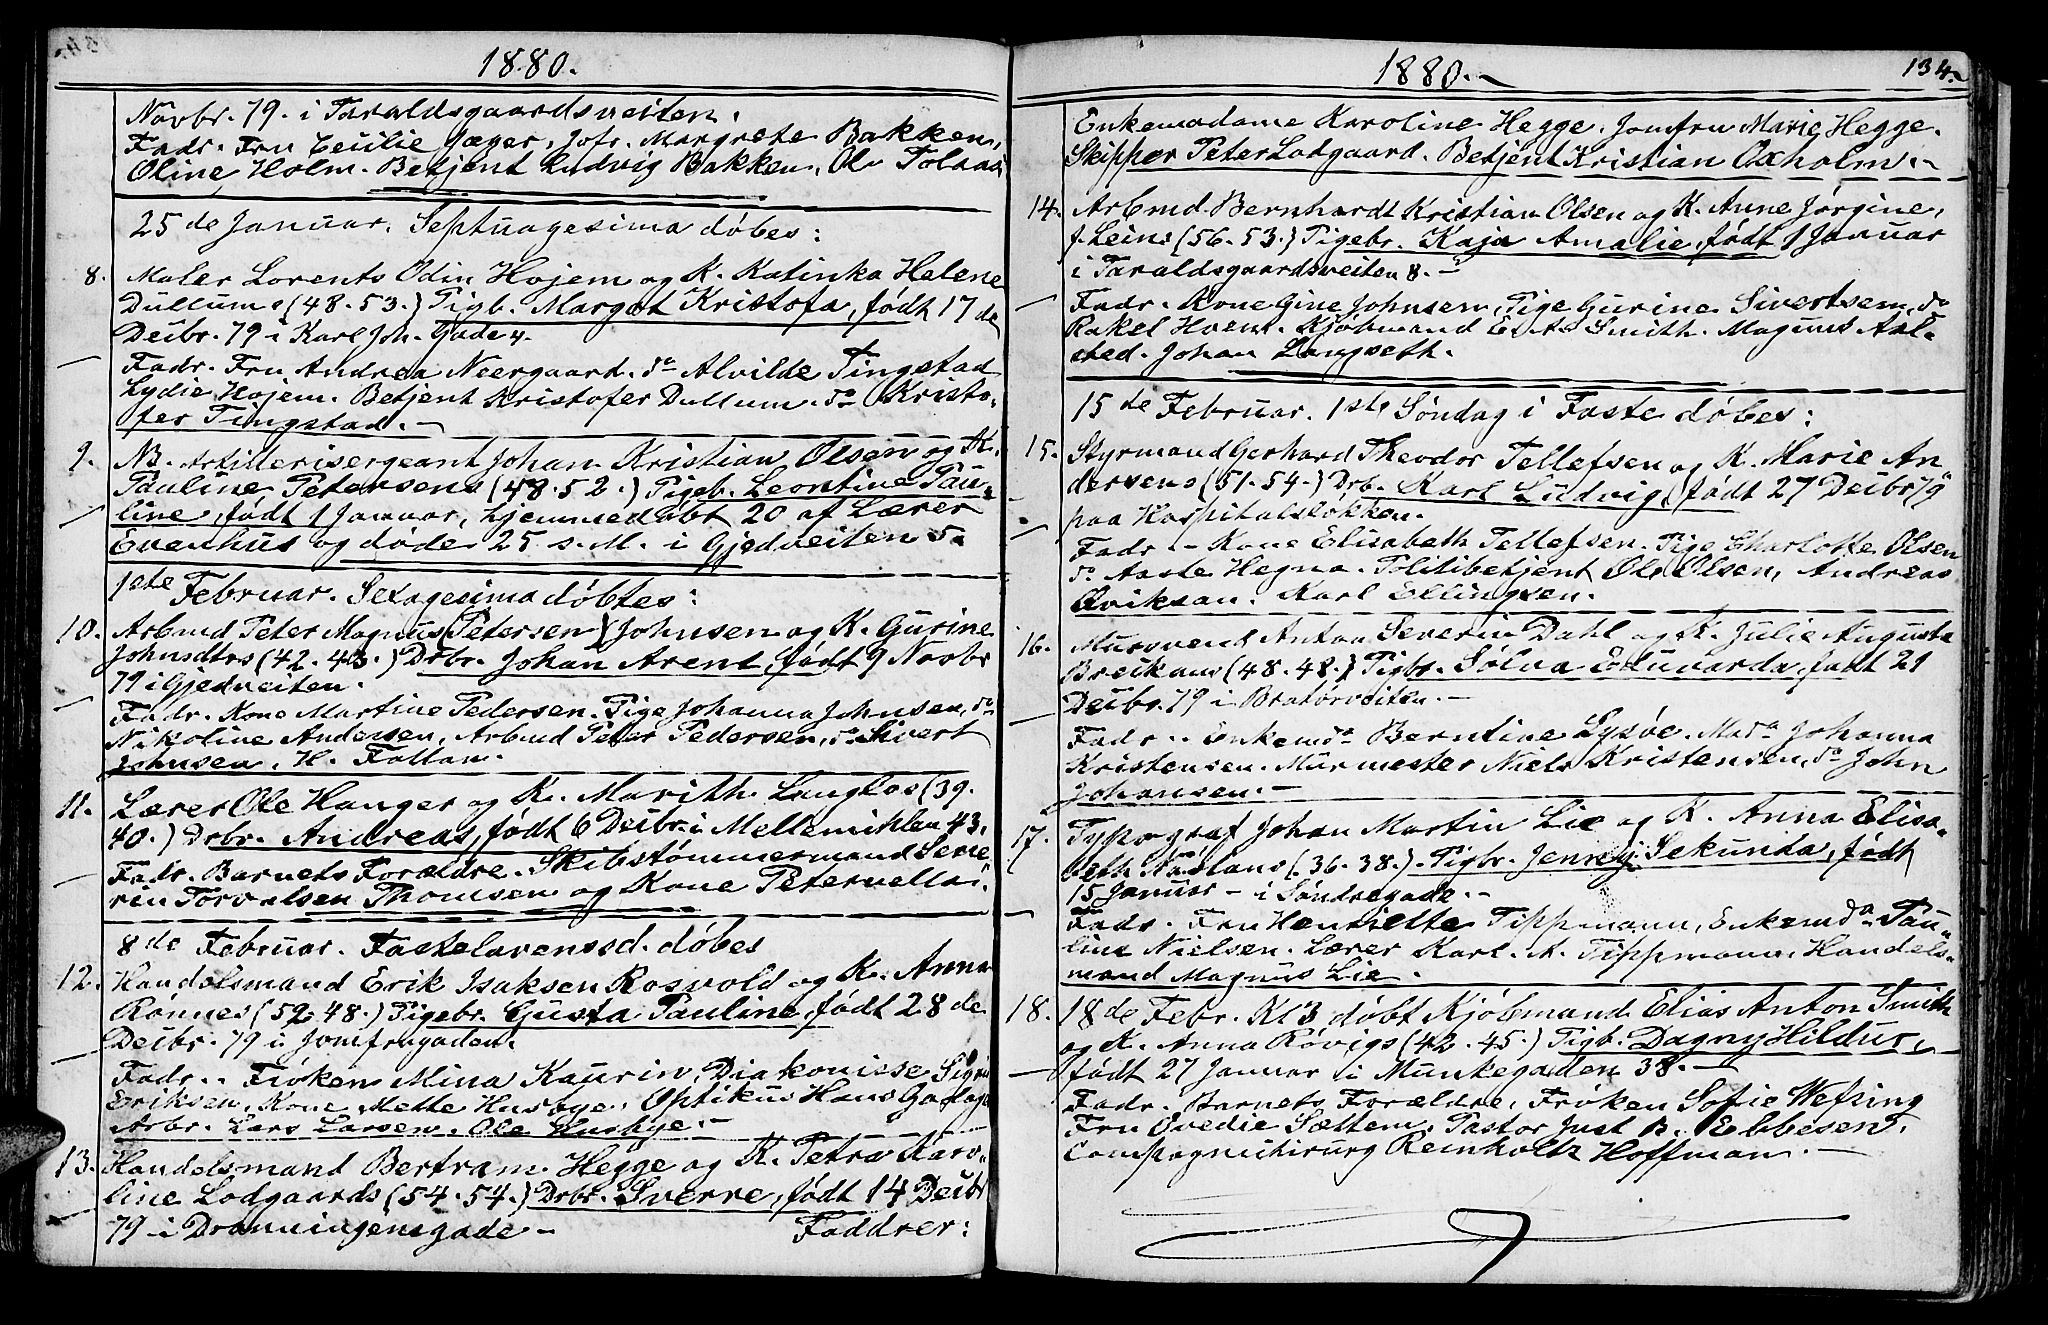 1880.
Novbr. 79. i Taraldsgaardsveiten.
Fadr. Fru Cecilie Jæger, Jofr. Margrete Bakken,
Oline Holm. Betjent Ludvig Bakken. Ole Tolaas
25de Januar. Septuagesima döbes:
8. Maler Lorents Odin Hojem og K. Katinka Helene
Dullums (48. 53.) Pigb. Margot Kristofa, födt 17 de
Decbr. 79 i Karl Joh. Gade 4.
Fadr. Fru Andrea Neergaard. do Alvilde Tingstad
Lydie Hojem. Betjent Kristofer Dullum. do Kristo-
fer Tingstad. -
9. NB. Artillerisergeant Johan Kristian Olsen og K.
Pauline Petersens (48. 52.) Pigeb. Leontine Pau-
line, födt 1 Januar, hjemmedöbt 20 af Lærer
Evenhus og döde 25 s. M. i Gjedveiten 5.
1ste Februar. Sexagesima döbtes:
10. Arbmd Peter Magnus (Petersen) Johnsen og K. Gurine
Johnsdtrs (42. 43.) Drbr. Johan Arent, födt 9 Novbr
79 i Gjedveiten.
Fadr. Kone Martine Pedersen. Pige Johanna Johnsen, do
Nikoline Andersen, Arbmd Peter Pedersen, do Sivert
Johnsen. H. Fottan.
11. Lærer Ole Hanger og K. Marith Langlos (39.
40.) Drbr. Andreas, födt 6 Decbr. i Mellemihlen 43.
Fadr. Barnets Forældre. Skibstömmermand Seve-
rin Torvalsen Thomsen og Kone Peternella.
8de Februar. Fastelavenssd. döbes
12. Handelsmand Erik Isaksen Rosvold og K. Anna
Rönnes (52. 48.) Pigebr. Gusta Pauline, födt 28 de
Decbr. 79 i Jomfrugaden.
Fadr. - Fröken Mina Kaurin, Diakonisse Sigri
Eriksen, Kone Mette Husbye. Optikus Hans
Arbr. Lars Larsen. Ole Husbye. -
13. Handelsmand Bertram Hegge og K. Petra Karo-
line Lodgaards (54. 54.) Drbr. Sverre, födt 14 Decbr
79 - i Dronningensgade - Faddrer:
1880. -
134.
Enkemadame Karoline Hegge. Jomfru Marie Hegge.
Skipper Peter Lodgaard. Betjent Kristian Oxholm. -
14. Arbmd. Bernhardt Kristian Olsen og K. Anne Jörgine,
f. Leins (56. 53.) Pigebr. Kaja Amalie, födt 1 Januar
i Taraldsgaardsveiten 8. -
Fadr. Kone Gine Johnsen, Pige Gurine Sivertsen, do
Rakel Hoem. Kjöbmand E. A. Smith. Magnus Aal-
sted. Johan Langseth.
15de Februar. 1ste Söndag i Faste döbes:
15. Styrmand Gerhard Theodor Tellefsen og K. Marie An-
dersens (51. 54.) Drb. Karl Ludvig, födt 27 Decbr 79
paa Hospitalslökken.
Fadr - Kone Elisabeth Tellefsen. Pige Charlotte Olsen
do Aaste Hegna. Politibetjent Ole Olsen, Andreas
Qviksan. Karl Ellingsen.
16. Mursvend Anton Severin Dahl og K. Julie Augusta
Breikans (48. 48.) Pigbr. Sölva Eduvarda, födt 21
Decbr. 79 i Bratörveiten. -
Fadr - Enkemda Berntine Lysöe. Mada Johanna
Kristensen. Murmester Niels Kristensen, do John
Johansen. -
17. Typograf Johan Martin Lie og K. Anna Elisa-
beth Næslans (36. 38.) - Pigbr. Jenny Sekunda, födt
15 Januar - i Söndregade. -
Fadr. Fru Henriette Tippmann, Enkemda Pau-
line Nielsen. Lærer Karl A. Tippmann. Handels-
mand Magnus Lie.
18. 18de Febr. Kl 3 döbt Kjöbmand Elias Anton Smith
og K. Anna Rövigs (42. 45.) Pigb. Dagny Hildur,
födt 27 Januar i Munkegaden 38. -
Fadr. Barnets Forældre, Fröken Sofie Wefring
Fru Ovedie Sættem, Pastor Just B. Ebbesen,
Compagnichirurg Reinholtz Hoffman. -